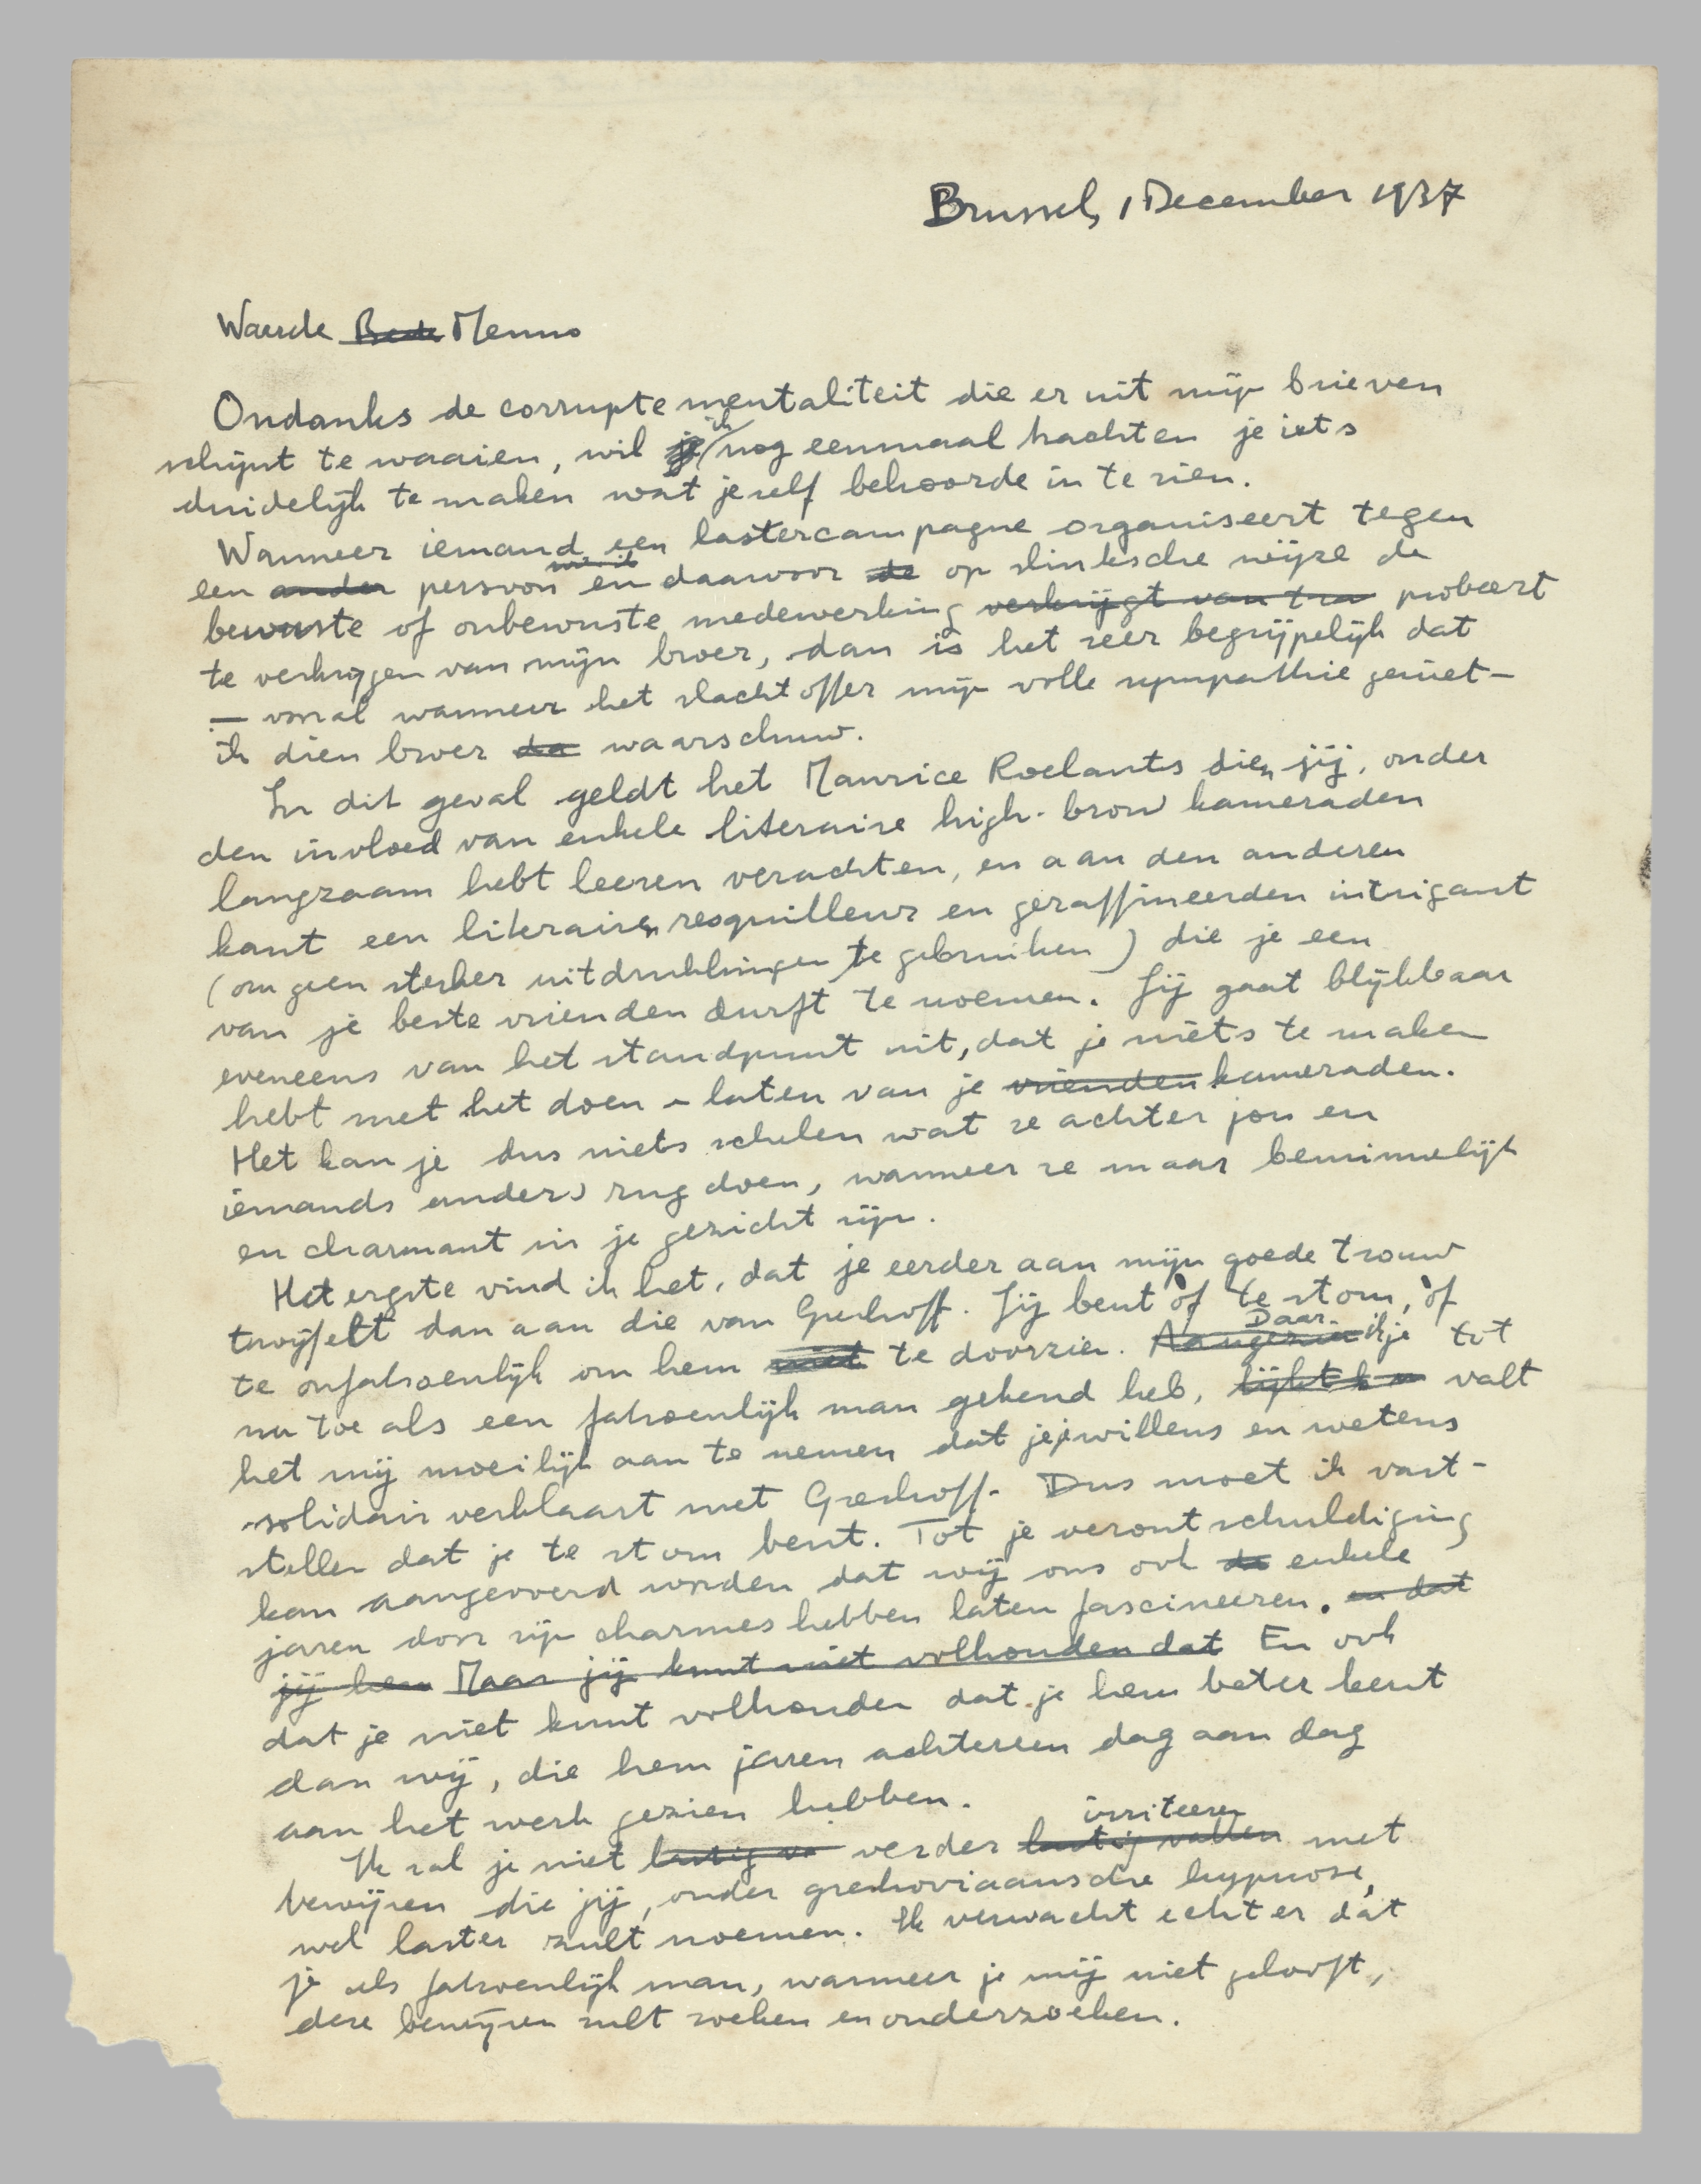 Brussel, 1 December 1937
Waarde Beste Menno
Ondanks de corrupte mentaliteit die er uit mijn brieven
schijnt te waaien, wil je ik nog eenmaal trachten je iets
duidelijk te maken wat jezelf behoorde in te zien.
Wanneer iemand een lastercampagne organiseert tegen
een ander persoon en daarvoor de op slinksche wijze de
bewuste of onbewuste medewerking verkrijgt van probeert
te verkrijgen van mijn broer, dan is het zeer begrijpelijk dat
— vooral wanneer het slachtoffer mijn volle sympathie geniet —
ik dien broer da waarschuw.
In dit geval geldt het Maurice Roelants dien jij, onder
den invloed van enkele literaire high-brow kameraden
langzaam hebt leeren verachten, en aan den anderen
kant een literairen resquilleur en geraffineerden intrigant
(om geen sterker uitdrukkingen te gebruiken) die je een
van je beste vrienden durft te noemen. Jij gaat blijkbaar
eveneens van het standpunt uit, dat je niets te maken
hebt met het doen en laten van je vrienden kameraden.
Het kan je dus niets schelen wat ze achter jou en
iemands anders rug doen, wanneer ze maar beminnelijk
en charmant in je gezicht zijn.
Het ergste vind ik het, dat je eerder aan mijn goede trouw
twijfelt dan aan die van Greshoff. Jij bent òf te stom, òf
te onfatsoenlijk om hem niet te doorzien. Aangezien Daar ik je tot
nu toe als een fatsoenlijk man gekend heb, lijkt valt
het mij moeilijk aan te nemen dat je je willens en wetens
solidair verklaart met Greshoff. Dus moet ik vast-
stellen dat je te stom bent. Tot je verontschuldiging
kan aangevoerd worden dat wij ons ook de enkele
jaren door zijn charmes hebben laten fascineeren. en dat
jij hem Maar jij kunt niet volhouden dat En ook
dat je niet kunt volhouden dat je hem beter kent
dan wij, die hem jaren achtereen dag aan dag
aan het werk gezien hebben.
Ik zal je niet lastig va verder lastig vallen irriteeren met
bewijzen die jij, onder greshoviaansche hypnose,
wel laster zult noemen. Ik verwacht echter dat
je als fatsoenlijk man, wanneer je mij niet gelooft,
deze bewijzen zult zoeken en onderzoeken.